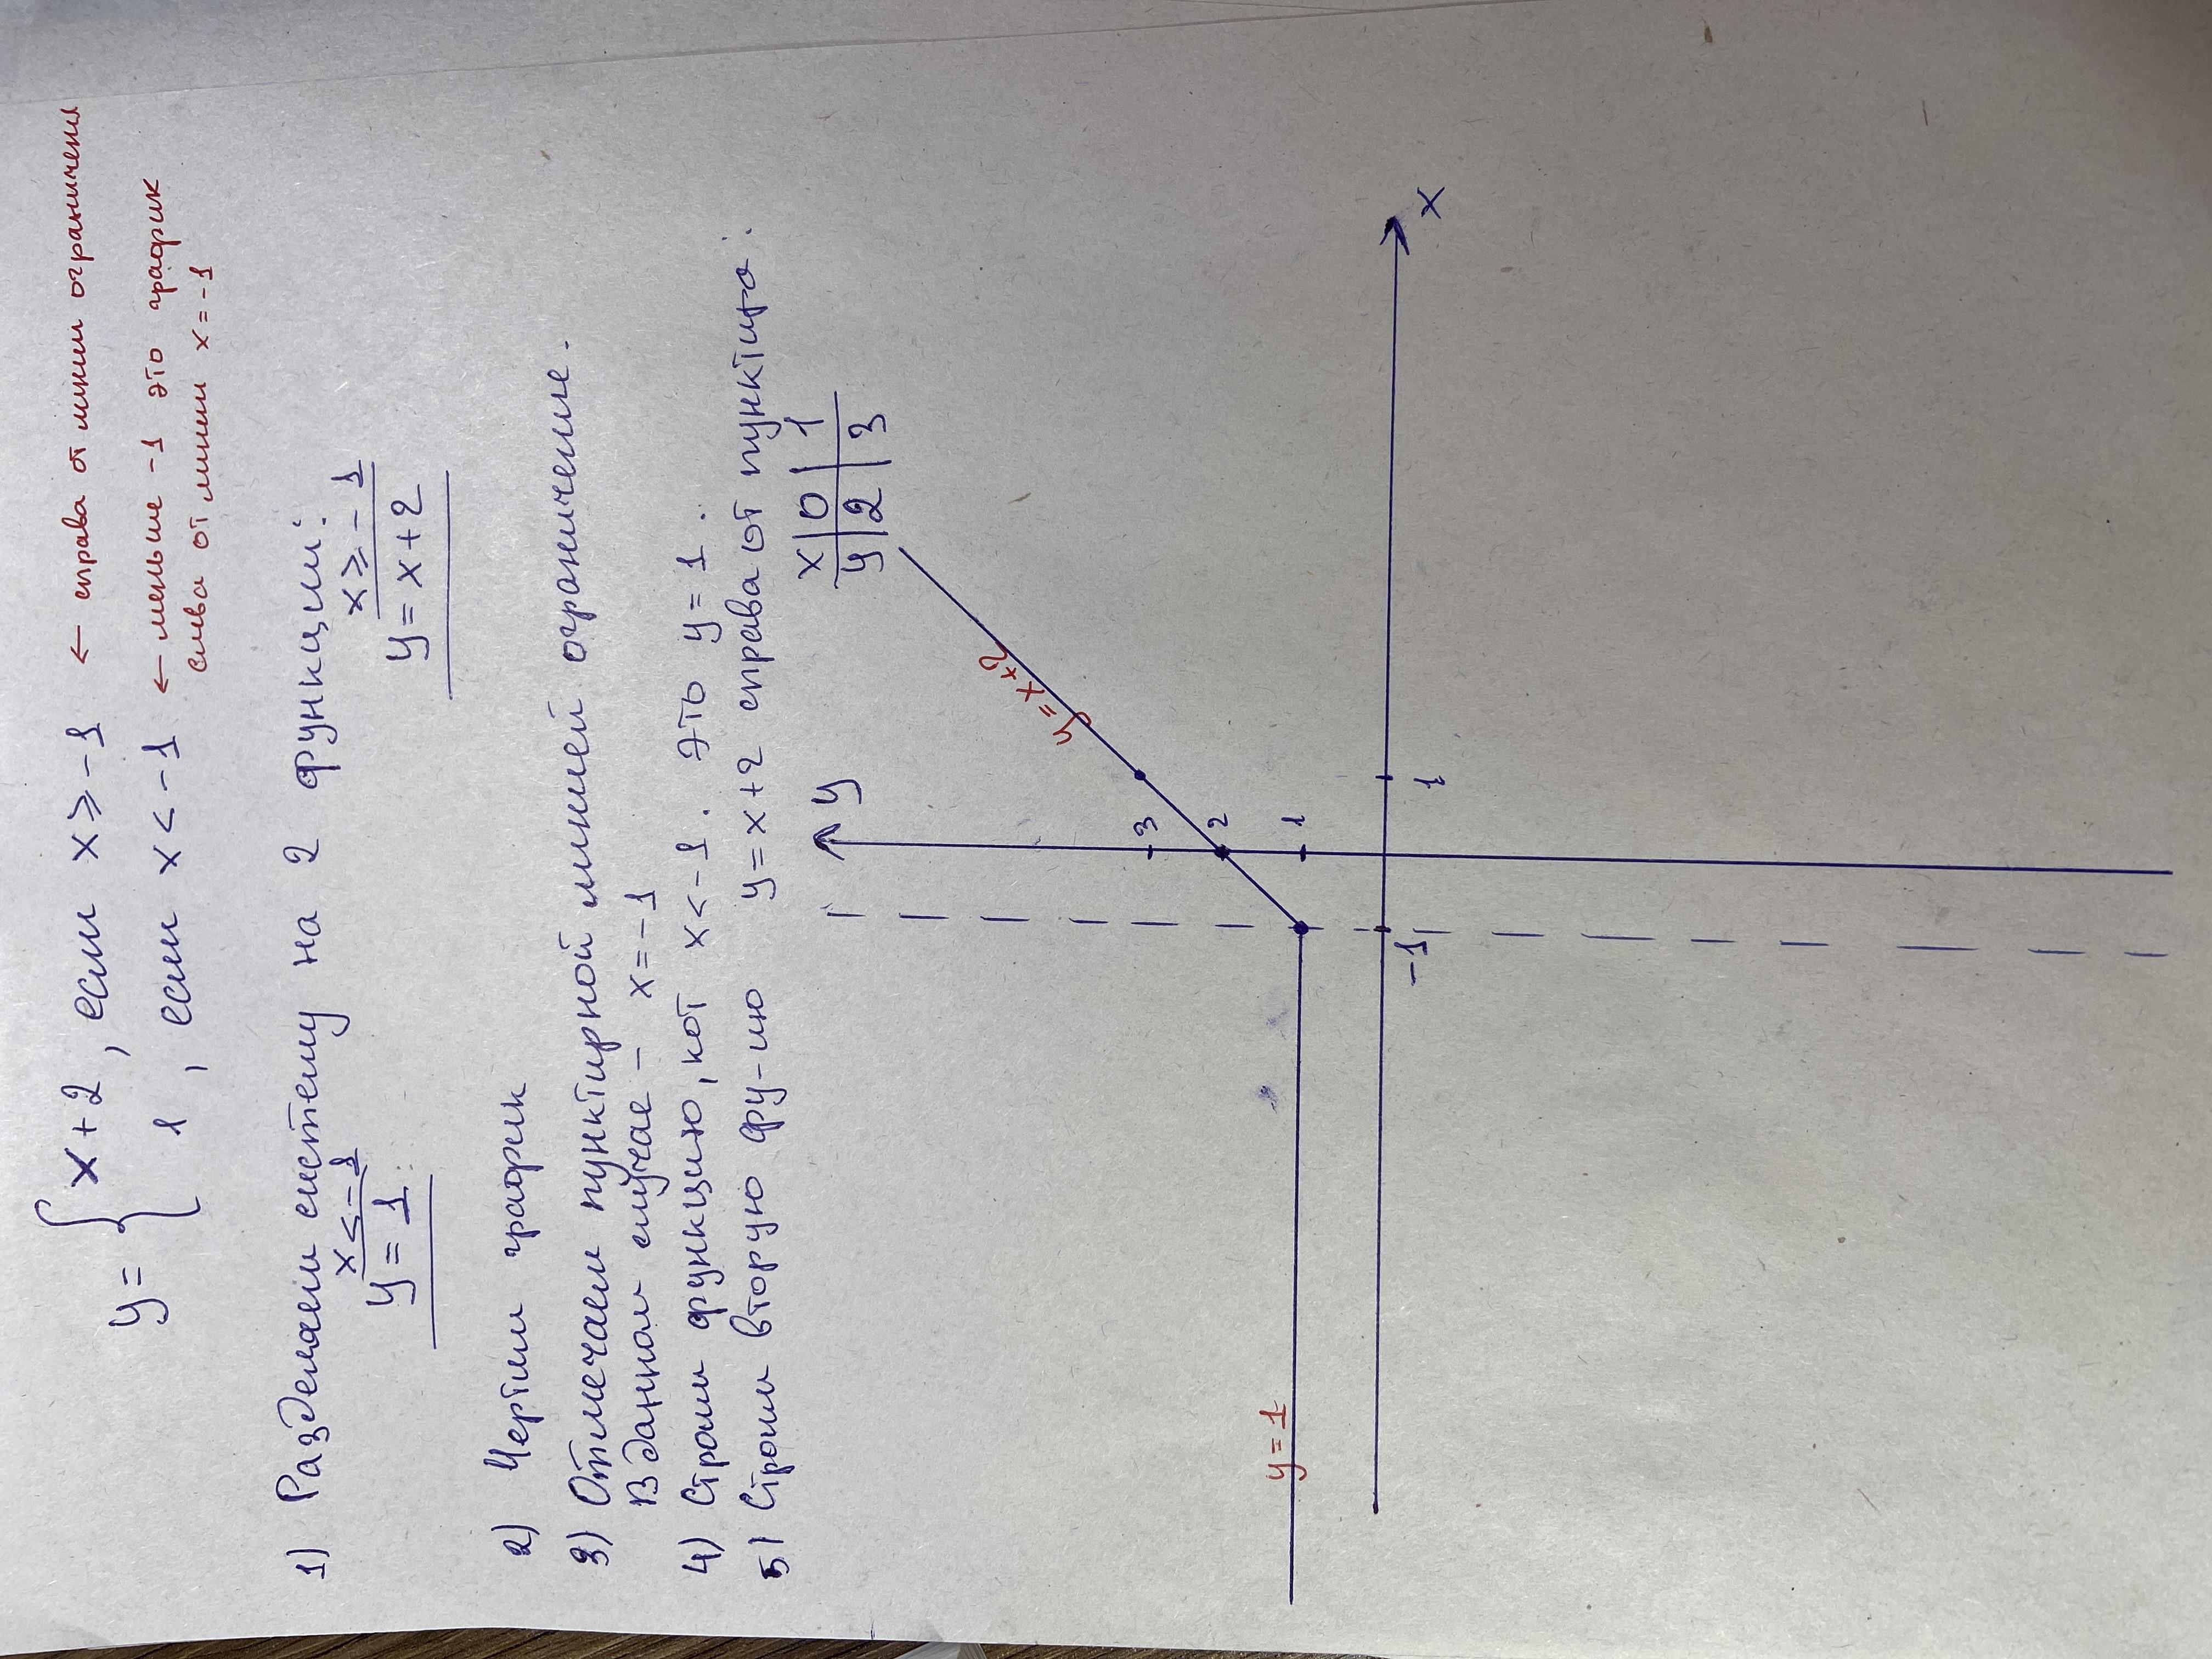 y = { x+2, если x ≥ -1 ← справа от линии ограничения
1, если x < -1 ← меньше -1 это график
слева от линии x = -1
1) Разделяем систему на 2 функции:
x < -1
y = 1
x ≥ -1
y = x+2
2) Чертим график
3) Отмечаем пунктирной линией ограничение.
В данном случае - x = -1
4) Строим функцию, кот x < -1. Это y = 1.
5) Строим вторую фу-ию y = x+2 справа от пунктира.
x | 0 | 1
y | 2 | 3
y
y = x+2
3
2
1
y = 1
-1
1
x